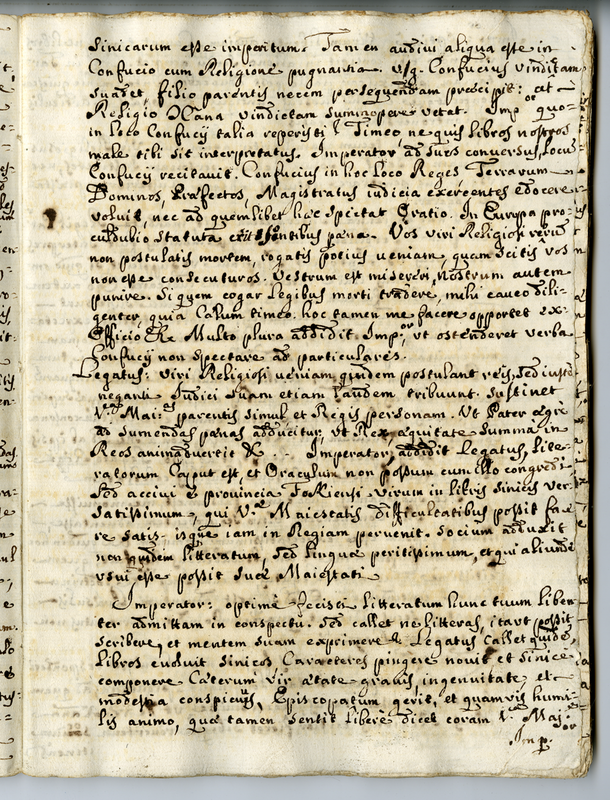 Sinicarum esse imperitum. Tamen audivi aliqua esse in
Confucio cum Religione pugnantia. v/g. Confucius vindictam
suadet, filio parentis necem persequendam præcipit: at
Religio Xana vindictam summopere vetat. Impor quo-
in loco Confucij talia reperisti? Timeo, ne quis libros nostros
male tibi sit interpretatus. Imperator ad suos conversus, locum
Confucij recitavit. Confucius in hoc loco Reges Terrarum
Dominos, Præfectos, Magistratus iudicia exercentes edocere
voluit, nec ad quemlibet hæc spectat Oratio. In Europa pro-
culdubio statuta erit sontibus pæna. Vos viri Religiosi reorum
non postulatis mortem, rogatis potius veniam, quam scitis vos
non esse consecuturos. Vestrum est misereri, nostrum autem
punire. Si quem cogar legibus morti tradere, mihi caveo dili-
genter, quia Cælum timeo. hoc tamen me facere opportet ex-
Officio &c. Multo plura addidit Impor, vt ostenderet verba
Confucij non spectare ad particulares.
Legatus: viri Religiosi veniam quidem postulant reis, sed iuste
neganti Iudici suam etiam laudem tribuunt. Sustinet
V.a Mai.as parentis simul et Regis personam. Vt Pater ægre
ad sumendas pænas adducitur, vt Rex, æquitate summa in
Reos animadvertit &c. - Imperator, addidit Legatus, lite-
ratorum Caput est, et Oraculum non possum cum illo congredi,
Sed accivi e provincia Fokiensi virum in libris Sinicis ver-
satissimum, qui V.æ Maiestatis difficultatibus possit face-
re satis. isque iam in Regiam pervenit. Socium adduxit
non quidem litteratum, sed linguæ peritissimum, et qui aliunde
vsui esse possit suæ Maiestati.
Imperator: optime fecisti litteratum hunc tuum liben-
ter admittam in conspectu. sed callet ne litteras, ita vt possit
scribere, et mentem suam exprimere? Legatus Callet quidem,
libros evolvit Sinicos, Caracteres pingere novit et Sinice
componere. Cæterum vir ætate gravis, ingenuitate, et
modestia conspicuus, Episcopatum gerit, et quamvis humi-
lis animo, quæ tamen sentit libere dicet coram V. Maj.
Imp.